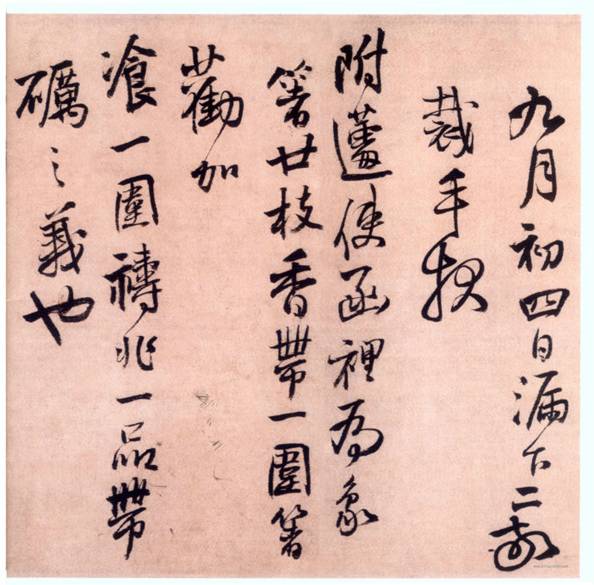 九月初四日漏下二
裁手
附使函裡為象
箸廿枝香帶一圍箸
勸加
湌一圍禱兆一品帶
礪之義也